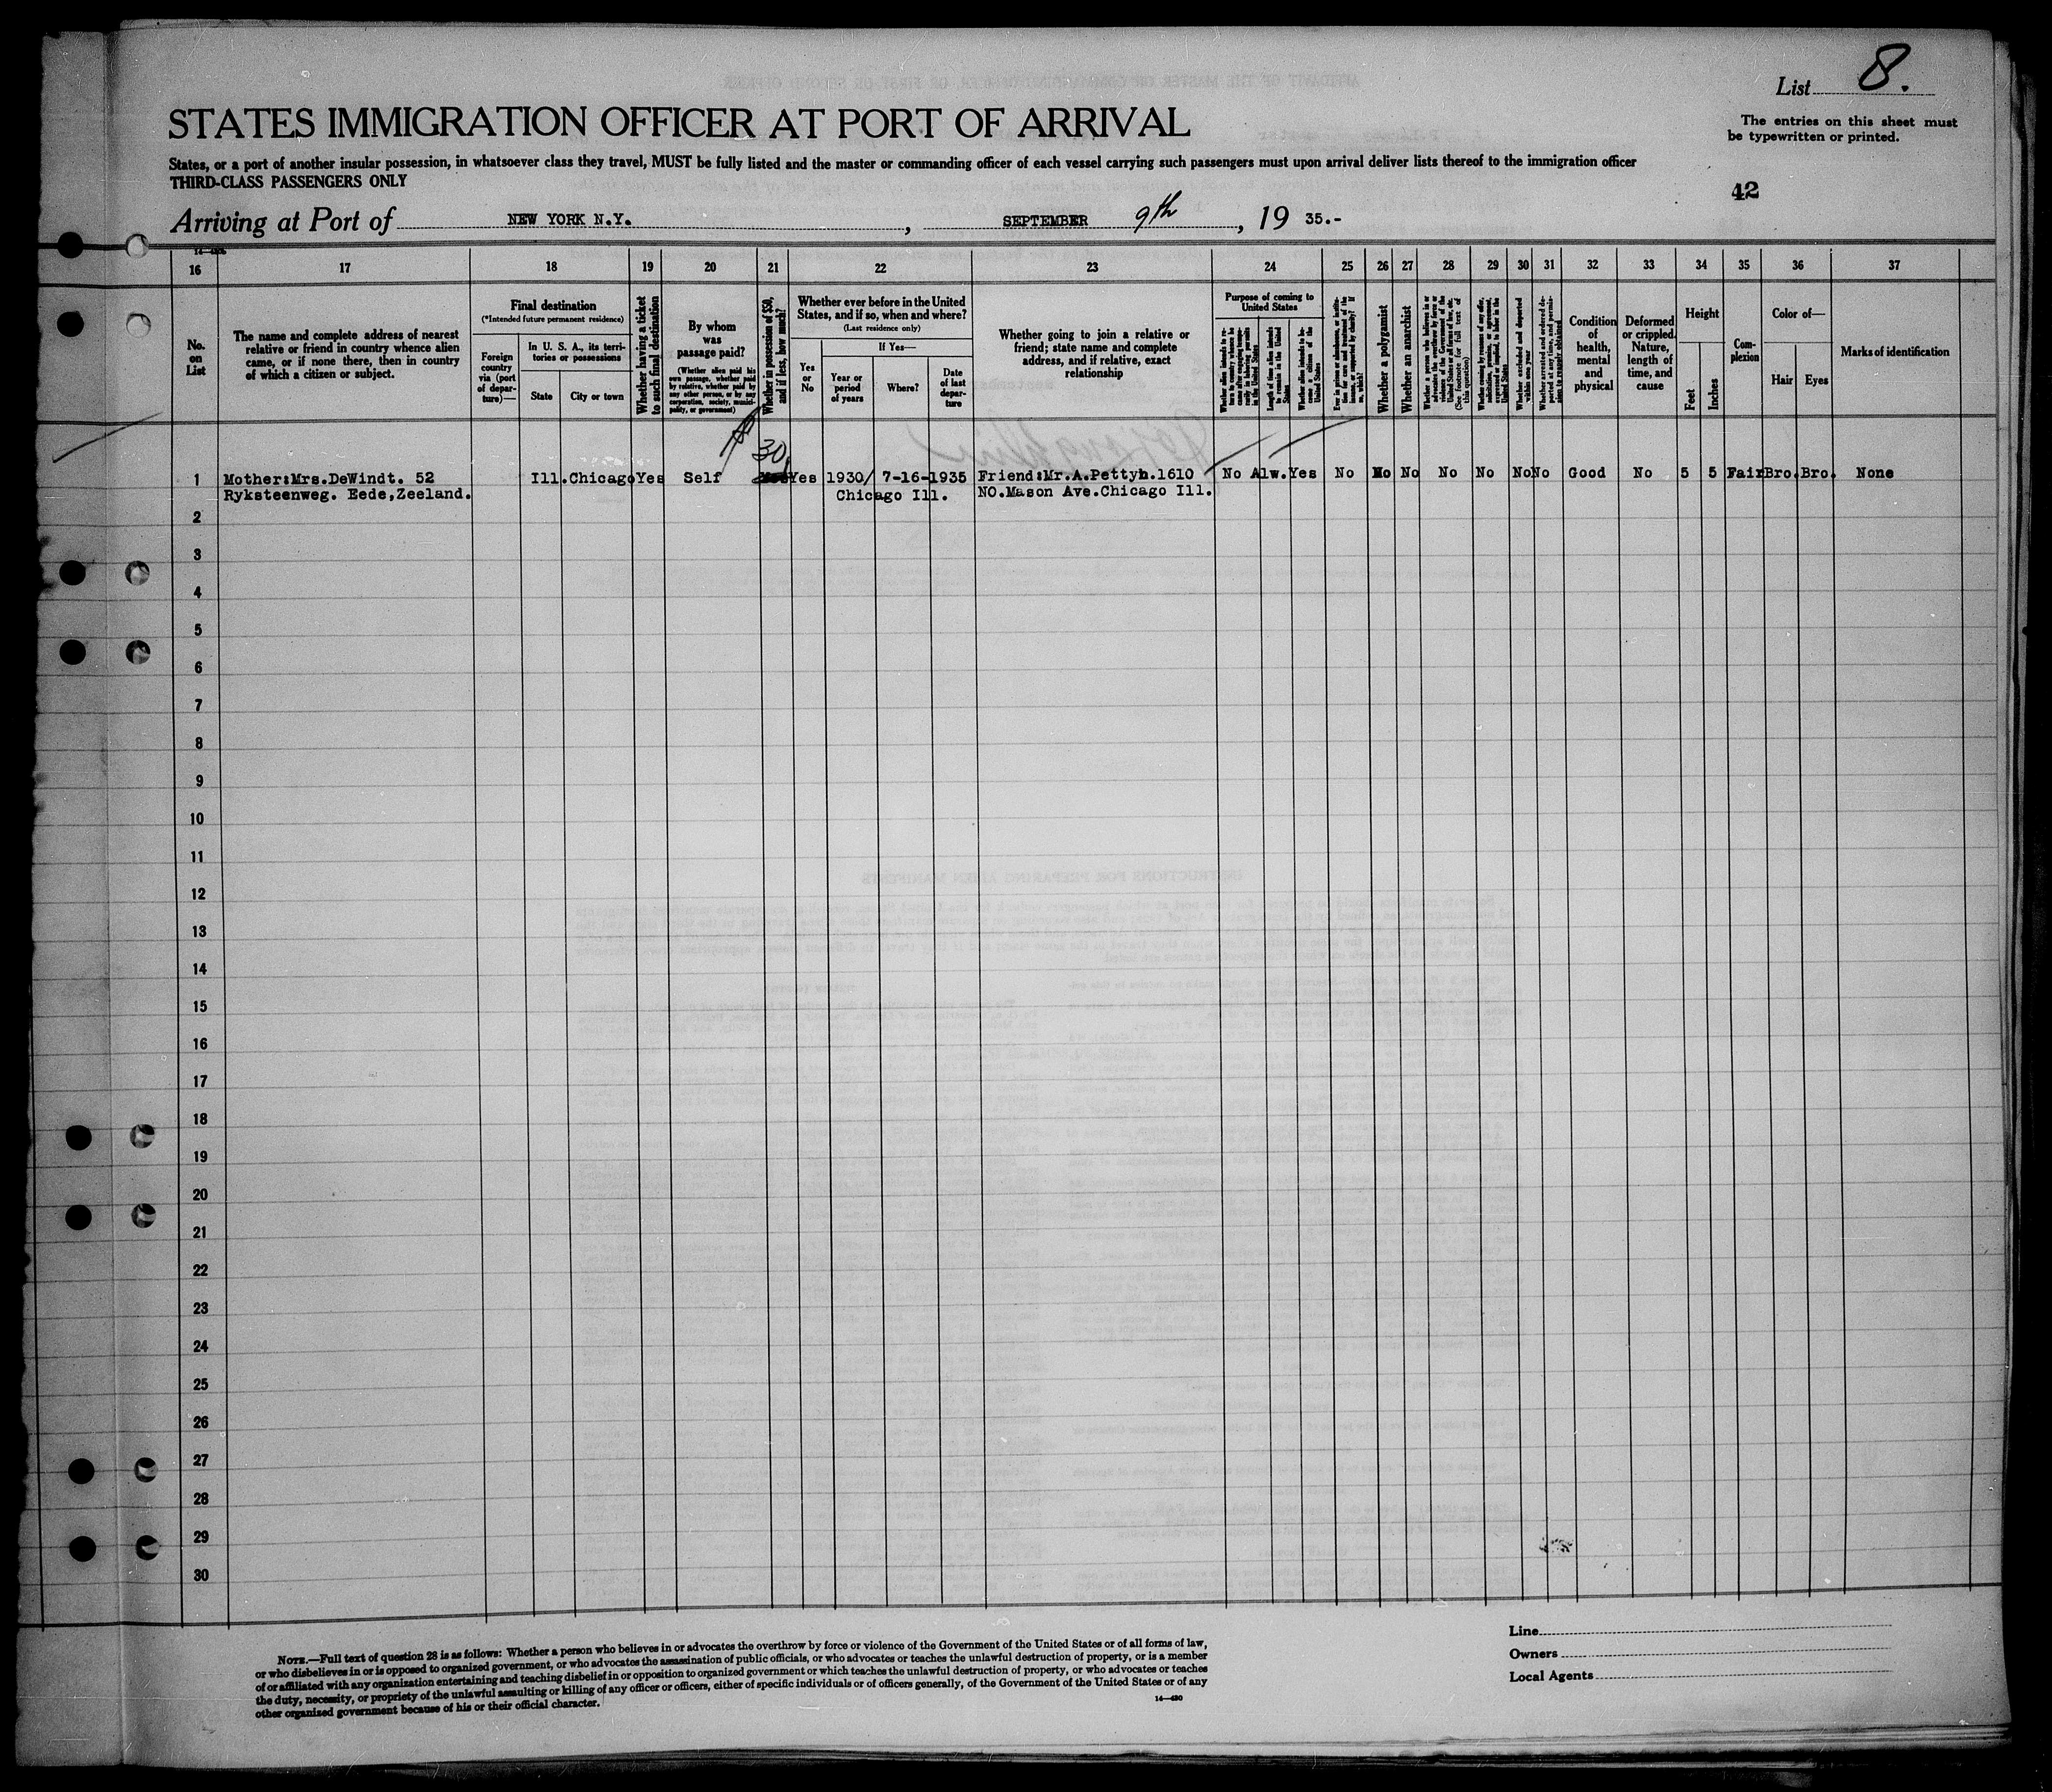 List 8.
STATES IMMIGRATION OFFICER AT PORT OF ARRIVAL
The entries on this sheet must
be typewritten or printed.
States, or a port of another insular possession, in whatsoever class they travel, MUST be fully listed and the master or commanding officer of each vessel carrying such passengers must upon arrival deliver lists thereof to the immigration officer
THIRD-CLASS PASSENGERS ONLY
42
Arriving at Port of NEW YORK N.Y. , SEPTEMBER 9th , 19 35.-
16 17 18 19 20 21 22 23 24 25 26 27 28 29 30 31 32 33 34 35 36 37
No.
on
List
The name and complete address of nearest
relative or friend in country whence alien
came, or if none there, then in country
of which a citizen or subject.
Final destination
(*Intended future permanent residence)
Foreign
country
via (port
of depar-
ture)—
In U. S. A., its terri-
tories or possessions
State City or town
Whether having a ticket
to such final destination
By whom
was
passage paid?
(Whether alien paid his
own passage, whether paid
by relative, whether paid by
any other person, or by any
corporation, society, munici-
pality, or government)
Whether in possession of $50,
and if less, how much?
Whether ever before in the United
States, and if so, when and where?
(Last residence only)
Yes
or
No
If Yes—
Year or
period
of years
Where?
Date
of last
depar-
ture
Whether going to join a relative or
friend; state name and complete
address, and if relative, exact
relationship
Purpose of coming to
United States
Whether alien intends to re-
turn to country whence he
came after engaging tempo-
rarily in laboring pursuits
in the United States
Length of time alien intends
to remain in the United
States
Whether alien intends to be-
come a citizen of the
United States
Ever in prison or almshouse, or institu-
tion for care and treatment of the
insane, or supported by charity? If
so, which?
Whether a polygamist
Whether an anarchist
Whether a person who believes in or
advocates the overthrow by force or
violence of the Government of the
United States or all forms of law, etc.
(See footnote for full text of
this question)
Whether coming by reason of any offer,
solicitation, promise, or agreement,
expressed or implied, to labor in the
United States
Whether excluded and deported
within one year
Whether arrested and ordered de-
ported at any time, and permis-
sion to reapply obtained
Condition
of
health,
mental
and
physical
Deformed
or crippled.
Nature,
length of
time, and
cause
Height
Feet Inches
Com-
plexion
Color of—
Hair Eyes
Marks of identification
$ 30
1 Mother:Mrs.DeWindt. 52 Ill. Chicago Yes Self Yes 1930/ 7-16-1935 Friend:Mr.A.Pettyh.1610 No Alw. Yes No No No No No No No Good No 5 5 Fair Bro. Bro. None
Ryksteenweg. Eede,Zeeland. Chicago Ill. NO.Mason Ave.Chicago Ill.
2
3
4
5
6
7
8
9
10
11
12
13
14
15
16
17
18
19
20
21
22
23
24
25
26
27
28
29
30
NOTE.—Full text of question 28 is as follows: Whether a person who believes in or advocates the overthrow by force or violence of the Government of the United States or of all forms of law,
or who disbelieves in or is opposed to organized government, or who advocates the assassination of public officials, or who advocates or teaches the unlawful destruction of property, or is a member
of or affiliated with any organization entertaining and teaching disbelief in or opposition to organized government or which teaches the unlawful destruction of property, or who advocates or teaches
the duty, necessity, or propriety of the unlawful assaulting or killing of any officer or officers, either of specific individuals or of officers generally, of the Government of the United States or of any
other organized government because of his or their official character.
14—480
Line
Owners
Local Agents